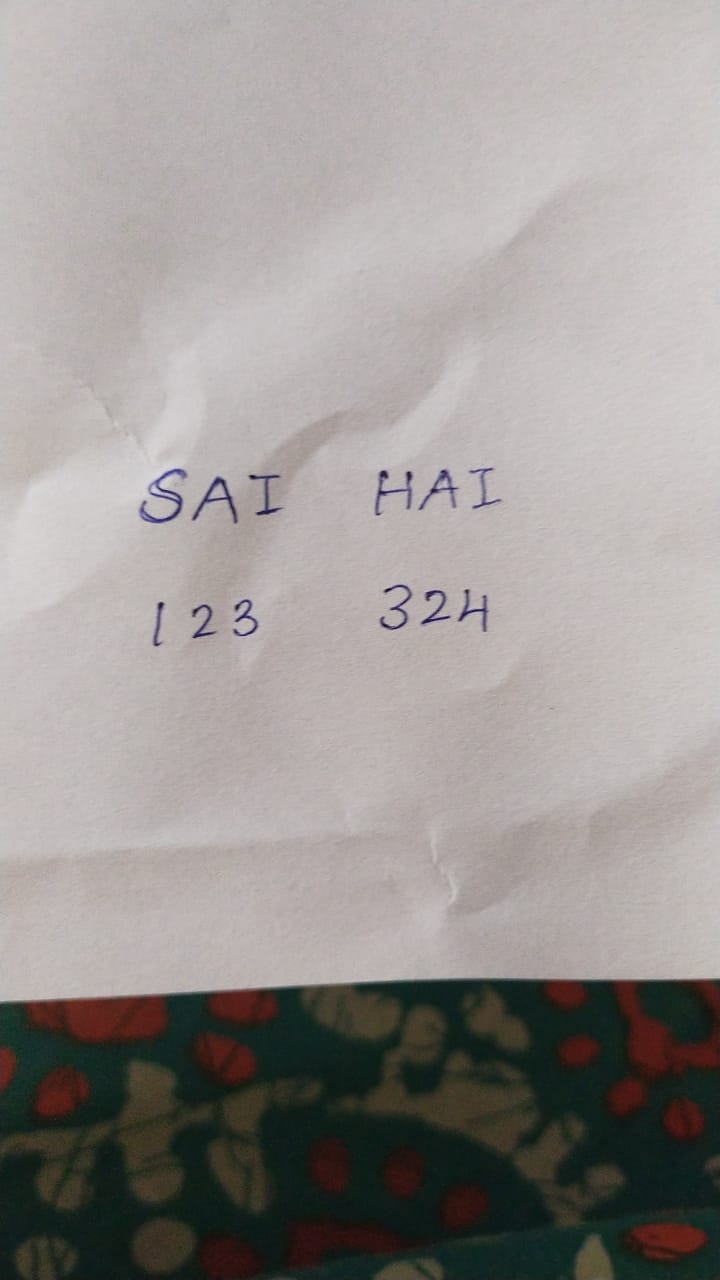 SAI HAI
123 324